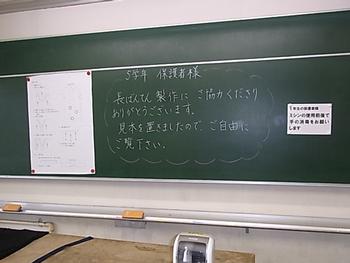 5学年 保護者様
長ばんてん製作に ご協力くださり
ありがとうございます。
見本を置きましたので、ご自由に
ご覧下さい。
ミシンの使用前後で
手の消毒をお願い
します